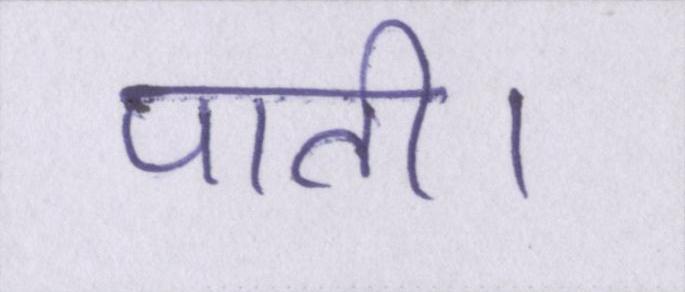 पाती।